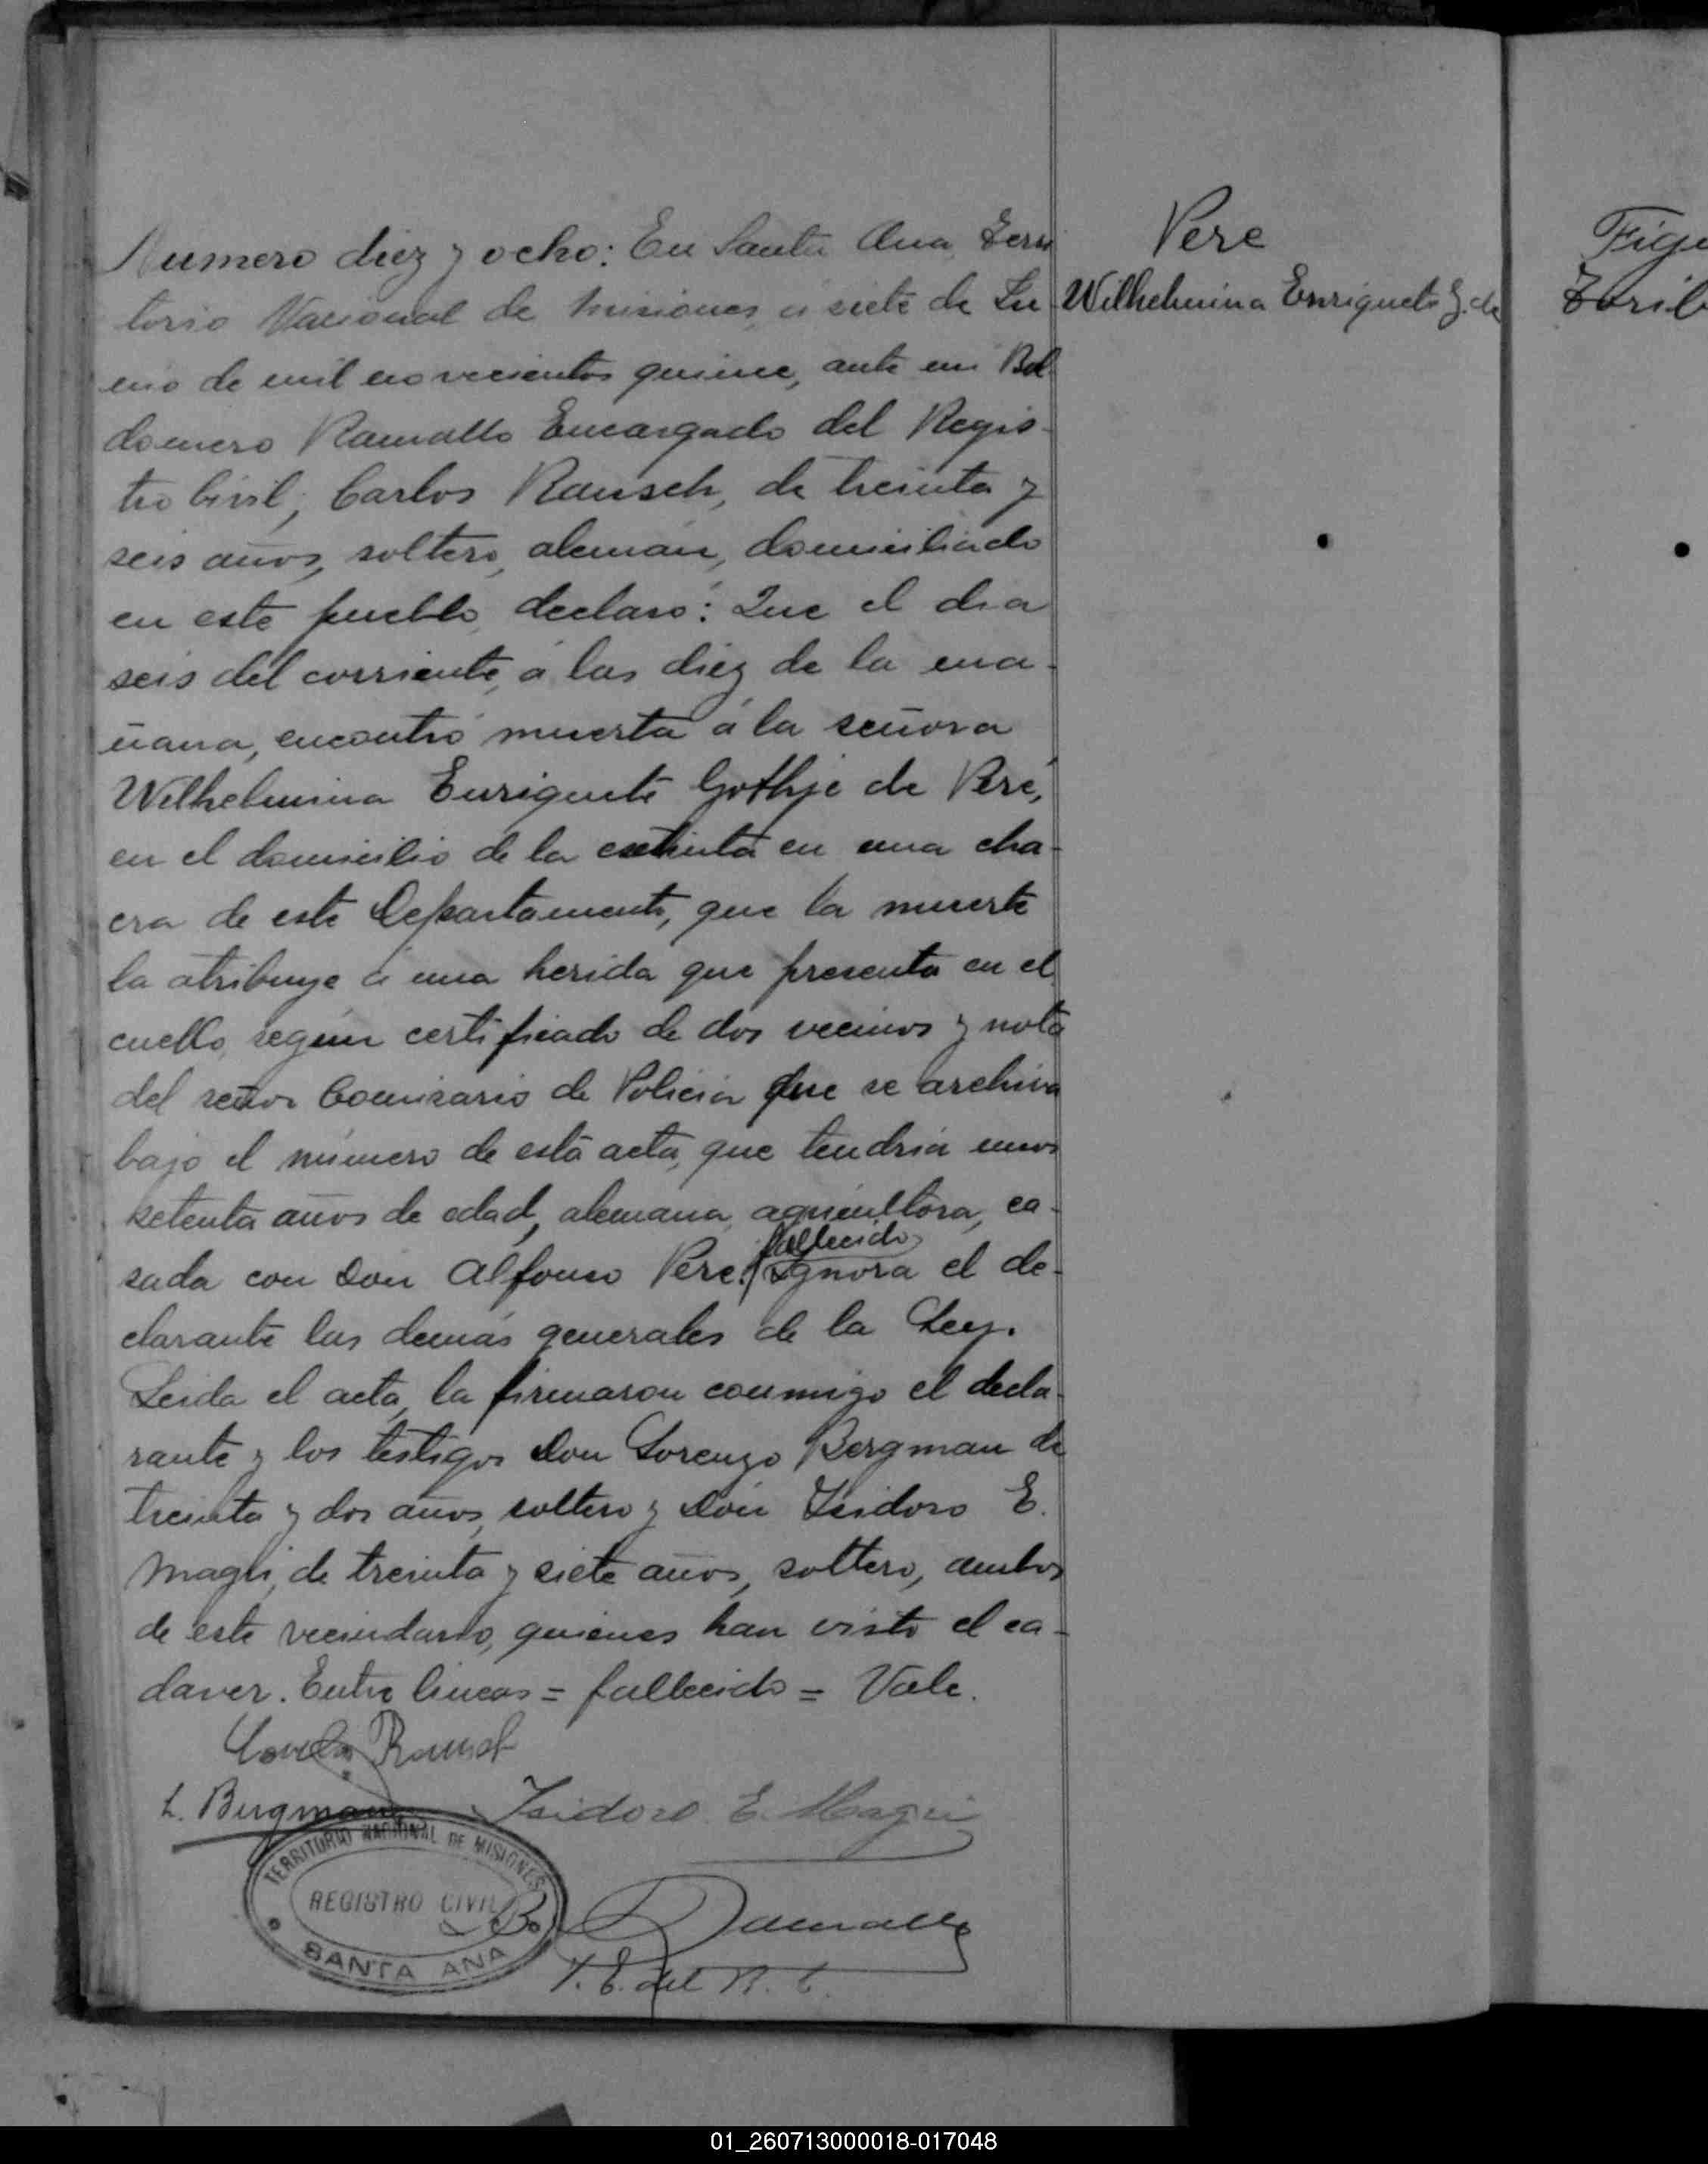 Vere
Wilhelmina Enriqueta G. de
Numero diez y ocho: En Santa Ana, Terri
torio Nacional de Misiones, a siete de
de mil novecientos quince, ante mi Bal
domero Ramallo Encargado del Regis-
tro Civil, Carlos Rausch, de treinta y
seis años, soltero, aleman, domiciliado
en este pueblo, declaró: Que el dia
seis del corriente, á las diez de la ma-
ñana, encontró muerta á la señora
Wilhelmina Enriqueta Gothje de Veré,
en el domicilio de la extinta en una cha-
cra de este Departamento, que la muerte
la atribuye á una herida que presenta en el
cuello, según certificado de dos vecinos y nota
del señor Comisario de Policia que se archiva
bajo el número de esta acta, que tendria unos
setenta años de edad, alemana, agricultora, ca-
fallecido
sada con Don Alfonso Vere. Ignora el de-
clarante las demás generales de la Ley.
Leida el acta, la firmaron conmigo el decla-
rante y los testigos Don Lorenzo Bergman de
treinta y dos años, soltero y Don Isidoro E.
Magri, de treinta y siete años, soltero, ambos
de este vecindario, quienes han visto el ca-
daver. Entre lineas = fallecido = Vale.
Carlos Rausch
L. Bergman
Isidoro E. Magri
TERRITORIO NACIONAL DE MISIONES
REGISTRO CIVIL
SANTA ANA
Bo Ramallo
E. del R. C.
Figu
Torib
01_260713000018-017048